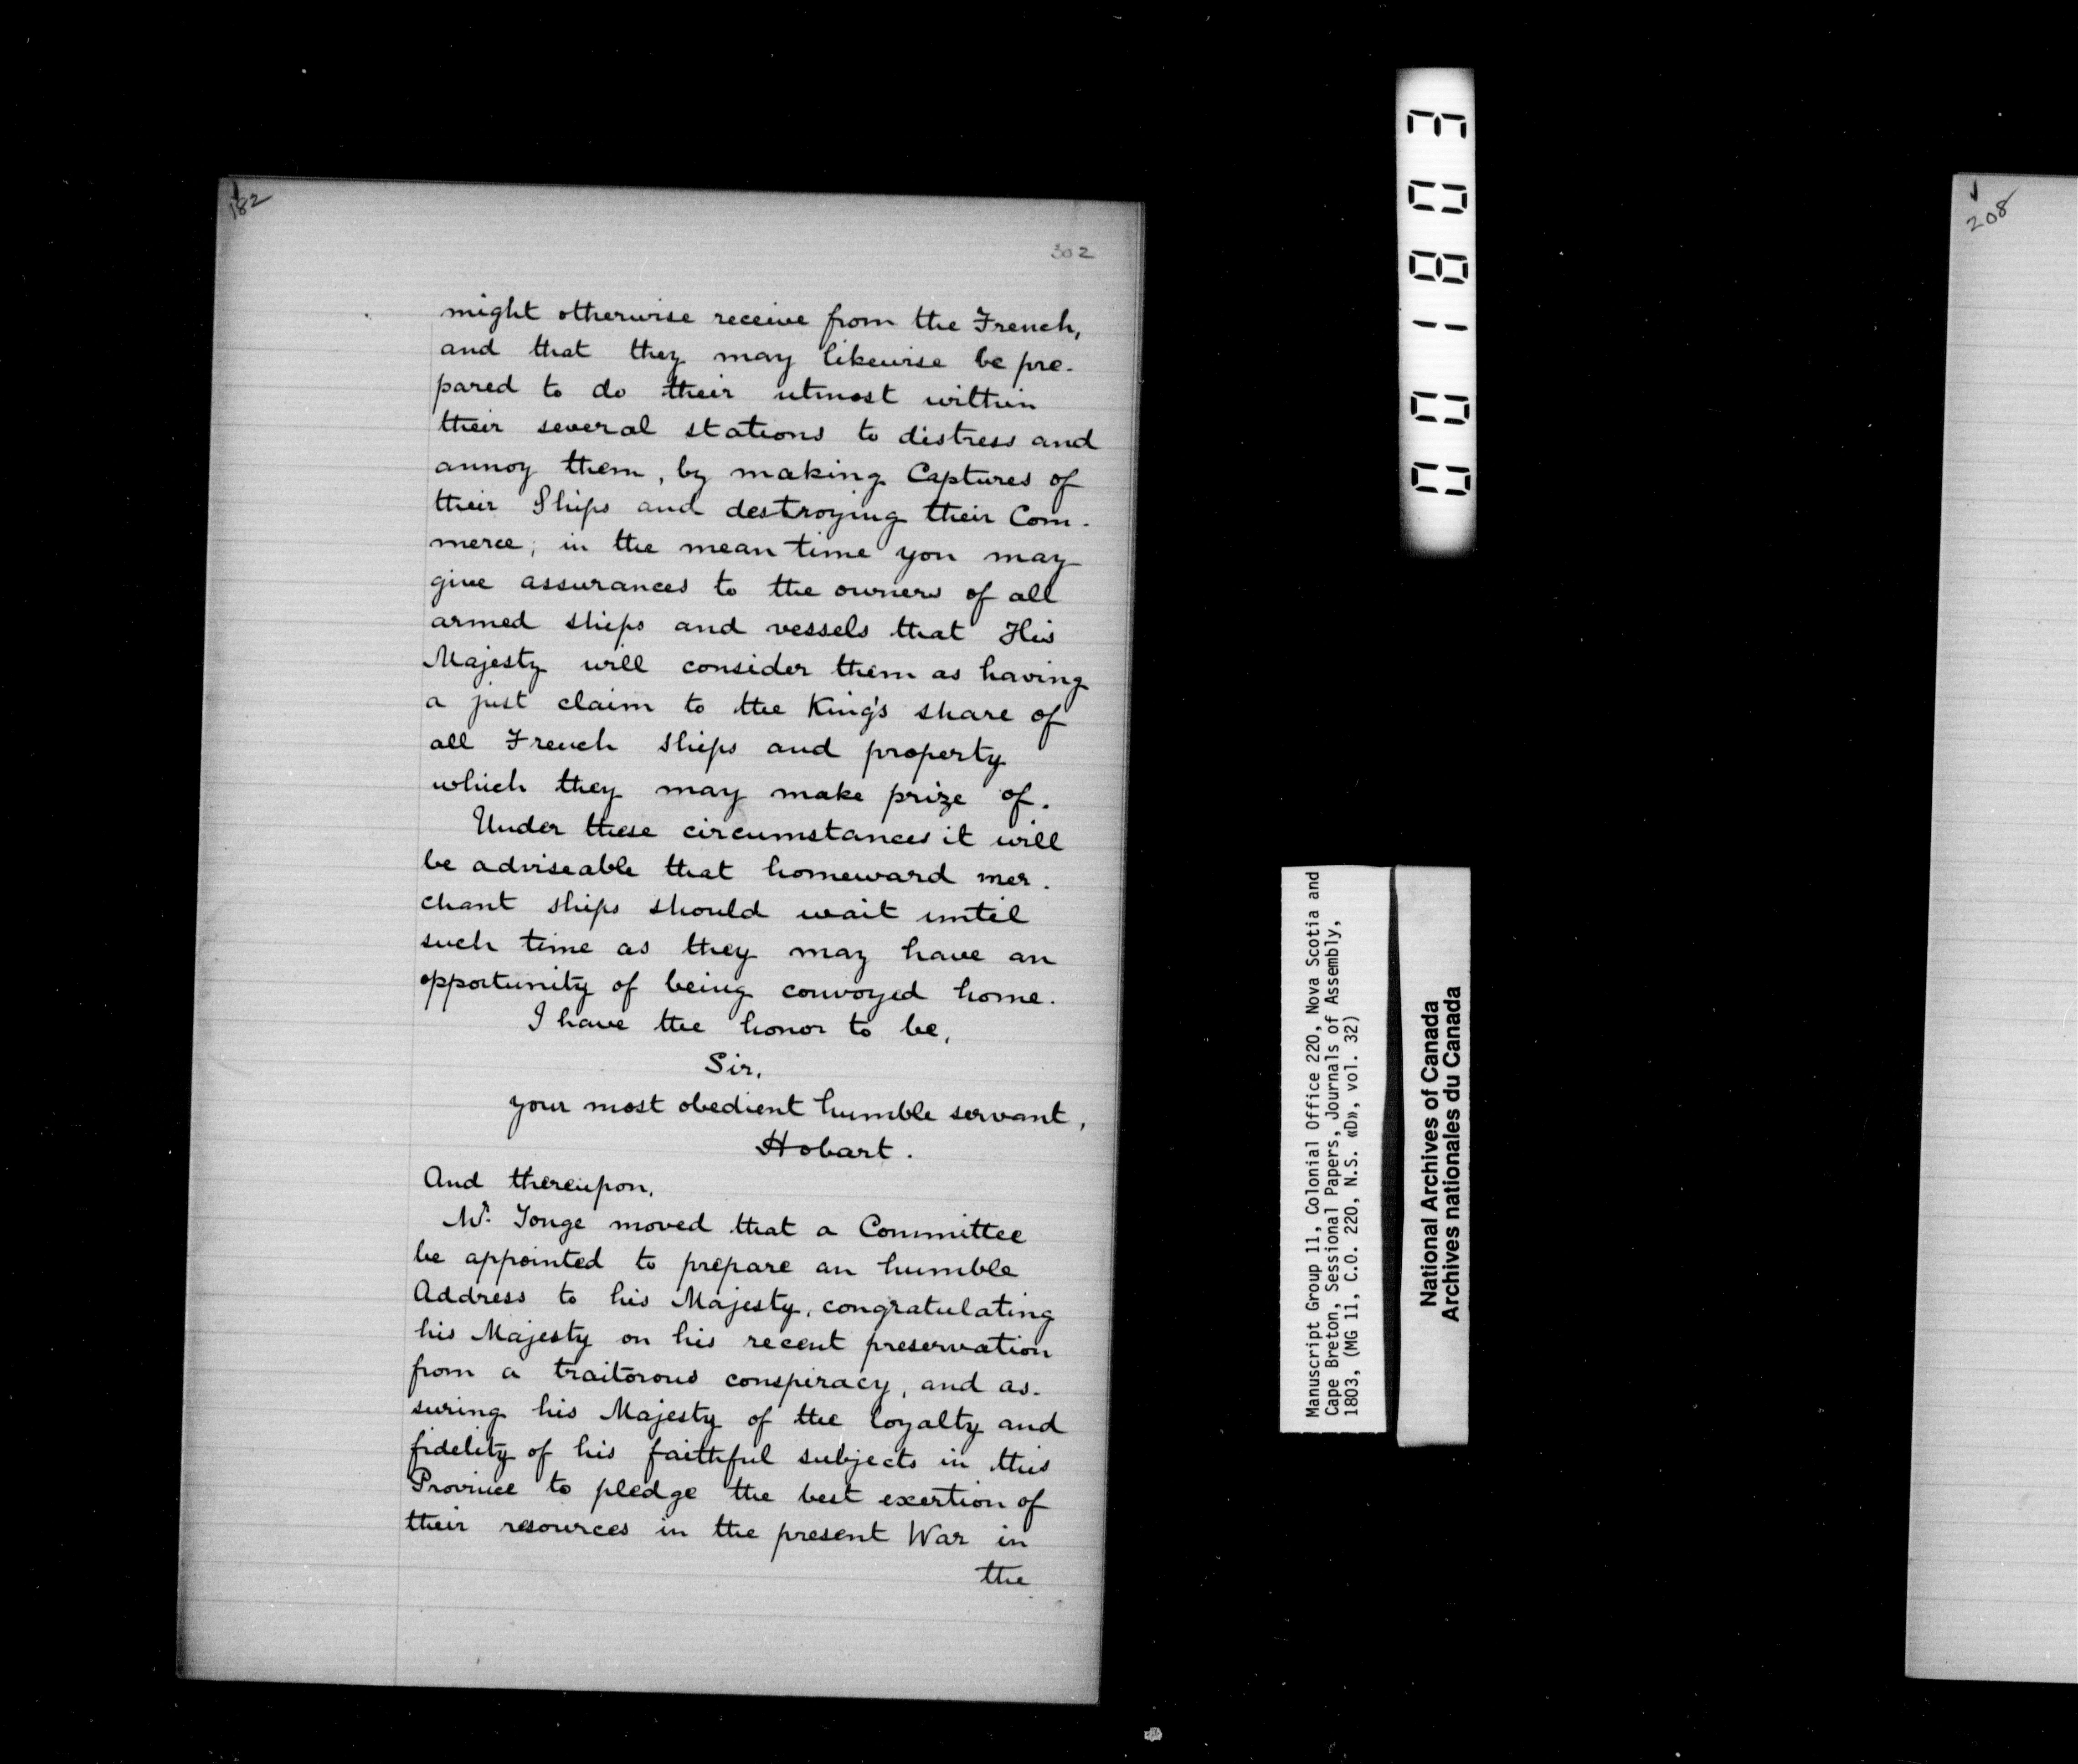 182
302
might otherwise receive from the French,
and that they may likewise be pre-
pared to do their utmost within
their several stations to distress and
annoy them, by making Captures of
their Ships and destroying their Com-
merce; in the mean time you may
give assurances to the owners of all
armed ships and vessels that His
Majesty will consider them as having
a just claim to the King's share of
all French ships and property
which they may make prize of.
Under these circumstances it will
be adviseable that homeward mer-
chant ships should wait until
such time as they may have an
opportunity of being convoyed home.
I have the honor to be,
Sir,
your most obedient humble servant,
Hobart.
And thereupon,
Mr. Tonge moved that a Committee
be appointed to prepare an humble
Address to his Majesty, congratulating
his Majesty on his recent preservation
from a traitorous conspiracy, and as-
suring his Majesty of the loyalty and
fidelity of his faithful subjects in this
Province to pledge the best exertion of
their resources in the present War in
the
001803
Manuscript Group 11, Colonial Office 220, Nova Scotia and
Cape Breton, Sessional Papers, Journals of Assembly,
1803, (MG 11, C.O. 220, N.S. «D», vol. 32)
National Archives of Canada
Archives nationales du Canada
208